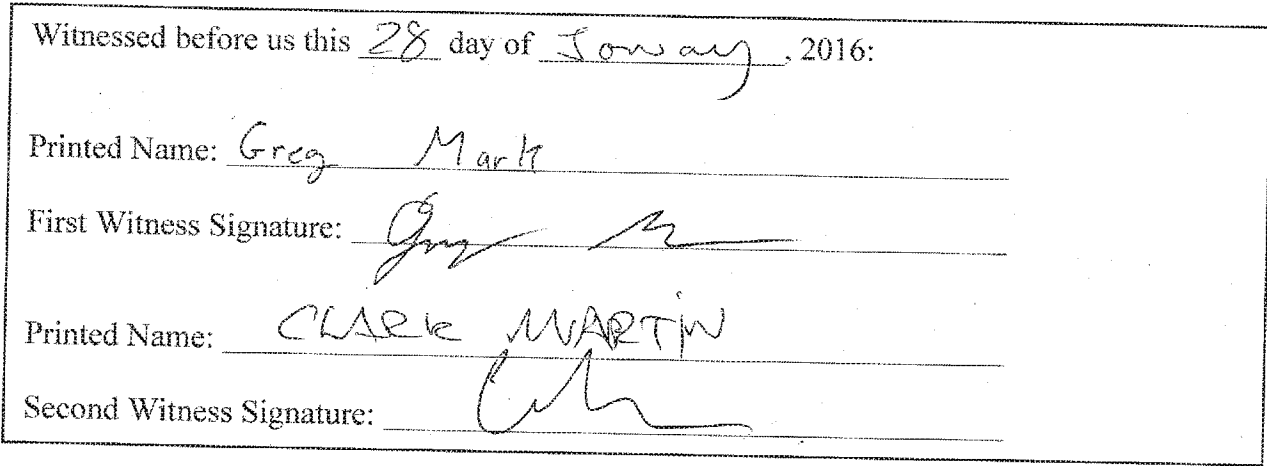 Witnessed before us this 28 day of January, 2016:
Printed Name: Greg Mark
First Witness Signature:
Printed Name: CLARK MARTIN
Second Witness Signature: